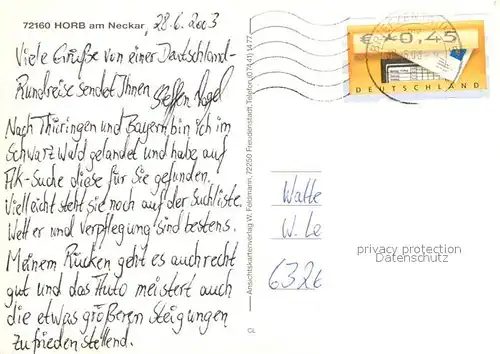 72160 HORB am Neckar, 28.6.2003
Viele Grüße von einer Deutschland-
Rundreise sendet Ihnen Steffen
Nach Thüringen und Bayern bin ich im
Schwarzwald gelandet und habe auf
AK-Suche diese für Sie gefunden.
Vielleicht steht sie noch auf der Suchliste.
Wetter und Verpflegung sind bestens.
Meinem Rücken geht es auch recht
gut und das Auto meistert auch
die etwas größeren Steigungen
zufriedenstellend.
Ansichtskartenverlag W. Feldmann, 72250 Freudenstadt, Telefon (07441) 1477
CL
€ 0,45
DEUTSCHLAND
Watte
W. Le
6326
privacy protection
Datenschutz